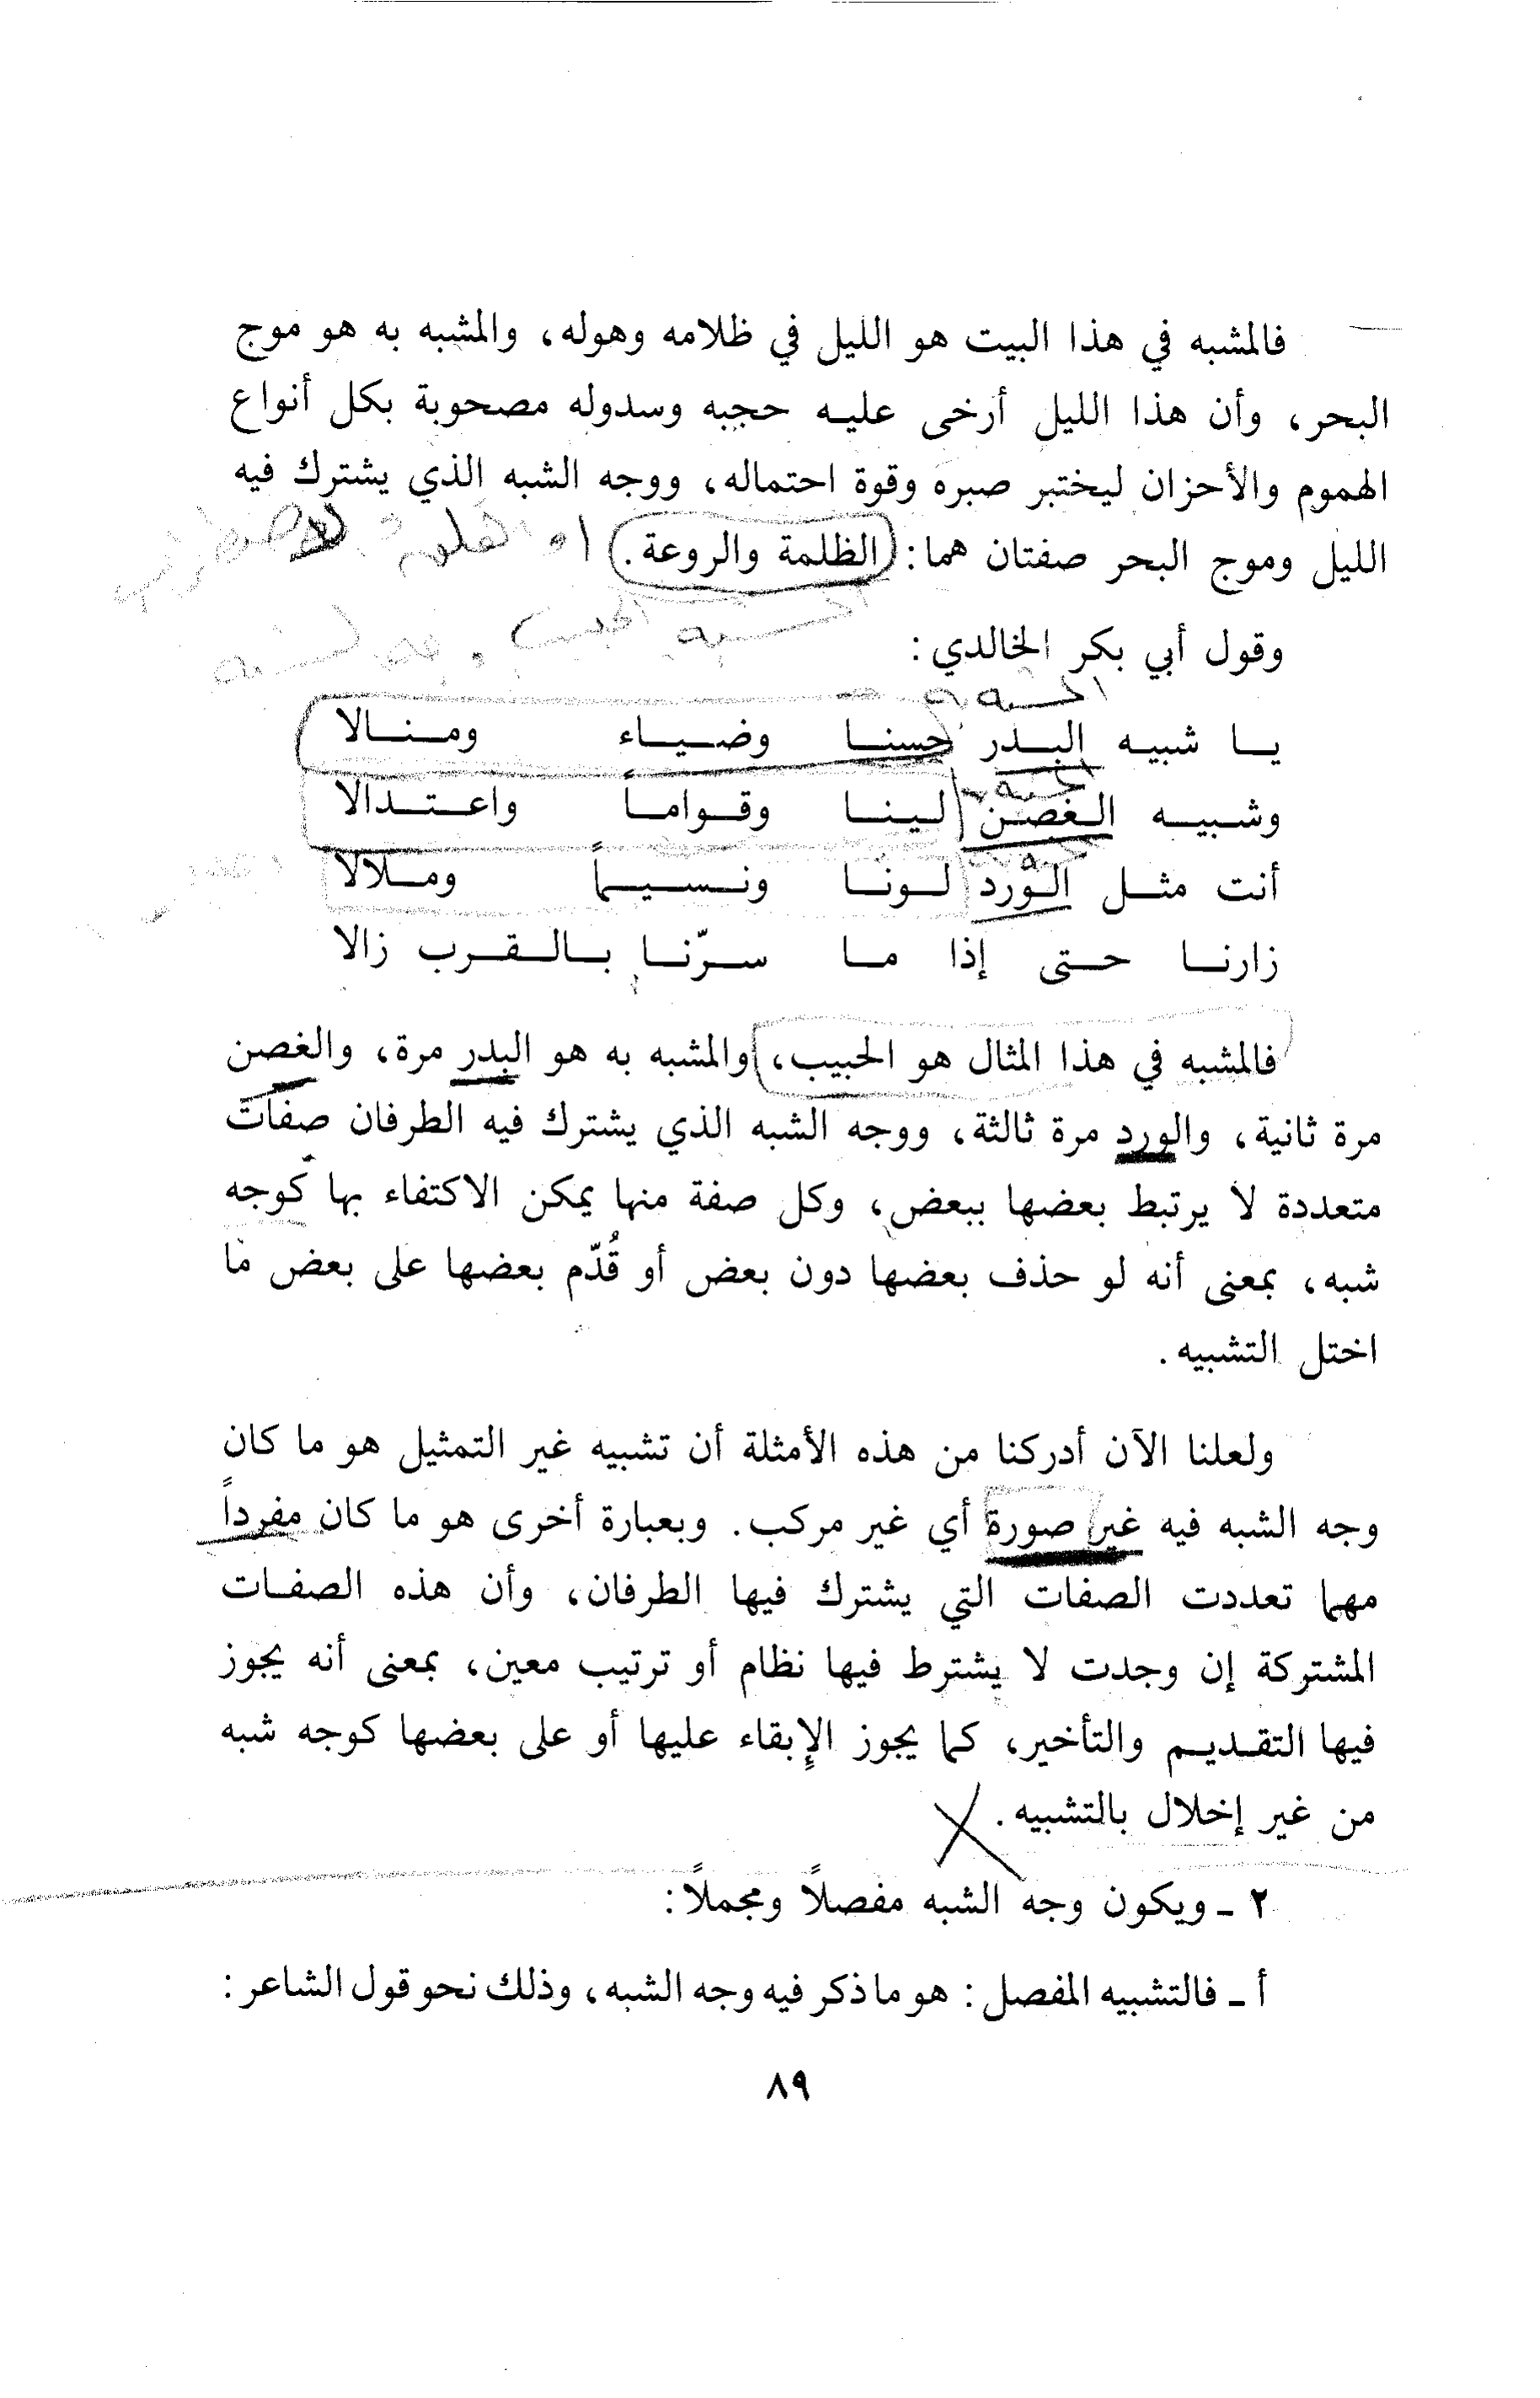 فالمشبه في هذا البيت هو الليل في ظلامه وهوله، والمشبه به هو موج
البحر، وأن هذا الليل أرخى عليه حجبه وسدوله مصحوبة بكل أنواع
الهموم والأحزان ليختبر صبره وقوة احتماله، ووجه الشبه الذي يشترك فيه
الليل وموج البحر صفتان هما: الظلمة والروعة.
وقول أبي بكر الخالدي:
المشبه به
يا شبيه البدر حسنا وضياء ومنالا
وشبيه الغصن لينا وقواماً واعتدالا
أنت مثل الورد لونا ونسيماً وملالا
زارنا حتى إذا ما سرّنا بالقرب زالا
فالمشبه في هذا المثال هو الحبيب، والمشبه به هو البدر مرة، والغصن
مرة ثانية، والورد مرة ثالثة، ووجه الشبه الذي يشترك فيه الطرفان صفات
متعددة لا يرتبط بعضها ببعض، وكل صفة منها يمكن الاكتفاء بها كوجه
شبه، بمعنى أنه لو حذف بعضها دون بعض أو قُدّم بعضها على بعض ما
اختل التشبيه.
ولعلنا الآن أدركنا من هذه الأمثلة أن تشبيه غير التمثيل هو ما كان
وجه الشبه فيه غير صورة أي غير مركب. وبعبارة أخرى هو ما كان مفرداً
مهما تعددت الصفات التي يشترك فيها الطرفان، وأن هذه الصفات
المشتركة إن وجدت لا يشترط فيها نظام أو ترتيب معين، بمعنى أنه يجوز
فيها التقديم والتأخير، كما يجوز الإبقاء عليها أو على بعضها كوجه شبه
من غير إخلال بالتشبيه.
٢ - ويكون وجه الشبه مفصلاً ومجملاً:
أ - فالتشبيه المفصل: هو ما ذكر فيه وجه الشبه، وذلك نحو قول الشاعر:
٨٩